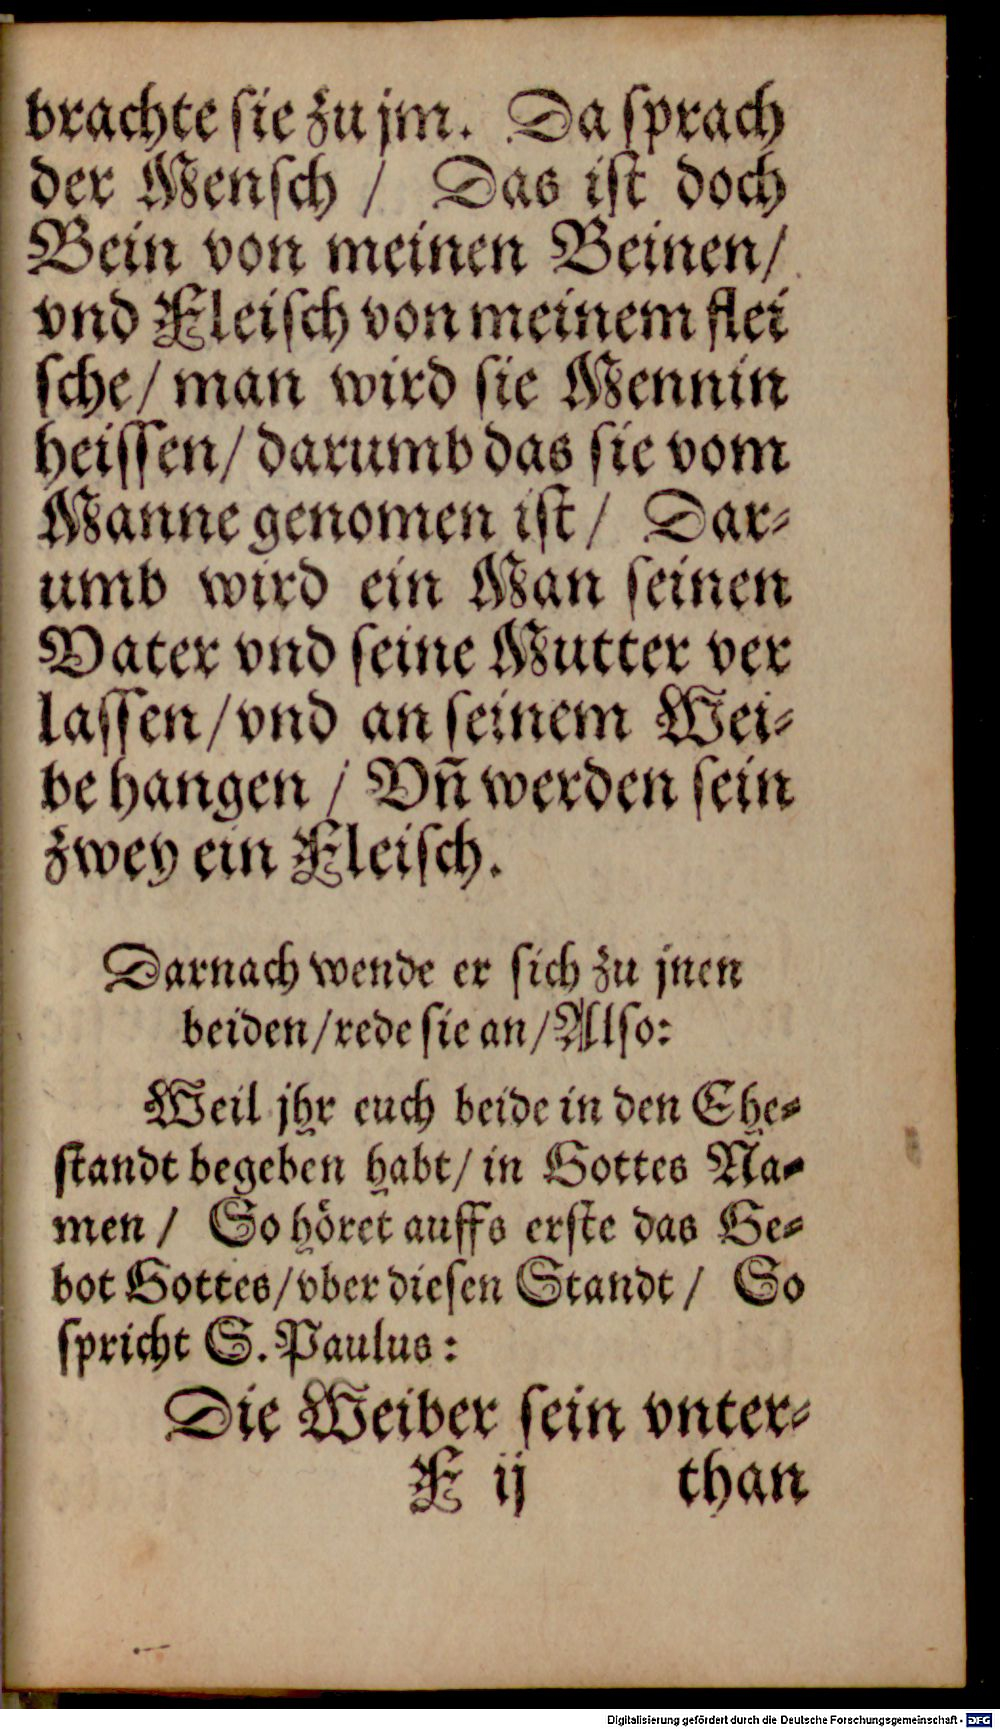 brachte sie zu jm. Da sprach
der Mensch / Das ist doch
Bein von meinen Beinen/
vnd Fleisch von meinem flei
sche/ man wird sie Mennin
heissen/ darumb das sie vom
Manne genomen ist/ Dar⸗
umb wird ein Man seinen
Vater vnd seine Mutter ver
lassen/ vnd an seinem Wei⸗
be hangen / Vñ werden sein
zwey ein Fleisch.
Darnach wende er sich zu jnen
beiden/ rede sie an/ Also:
Weil jhr euch beide in den Ehe⸗
standt begeben habt/ in Gottes Na⸗
men / So höret auffs erste das Ge⸗
bot Gottes/ vber diesen Standt / So
spricht S. Paulus:
Die Weiber sein vnter⸗
F ij than
Digitalisierung gefördert durch die Deutsche Forschungsgemeinschaft - DFG